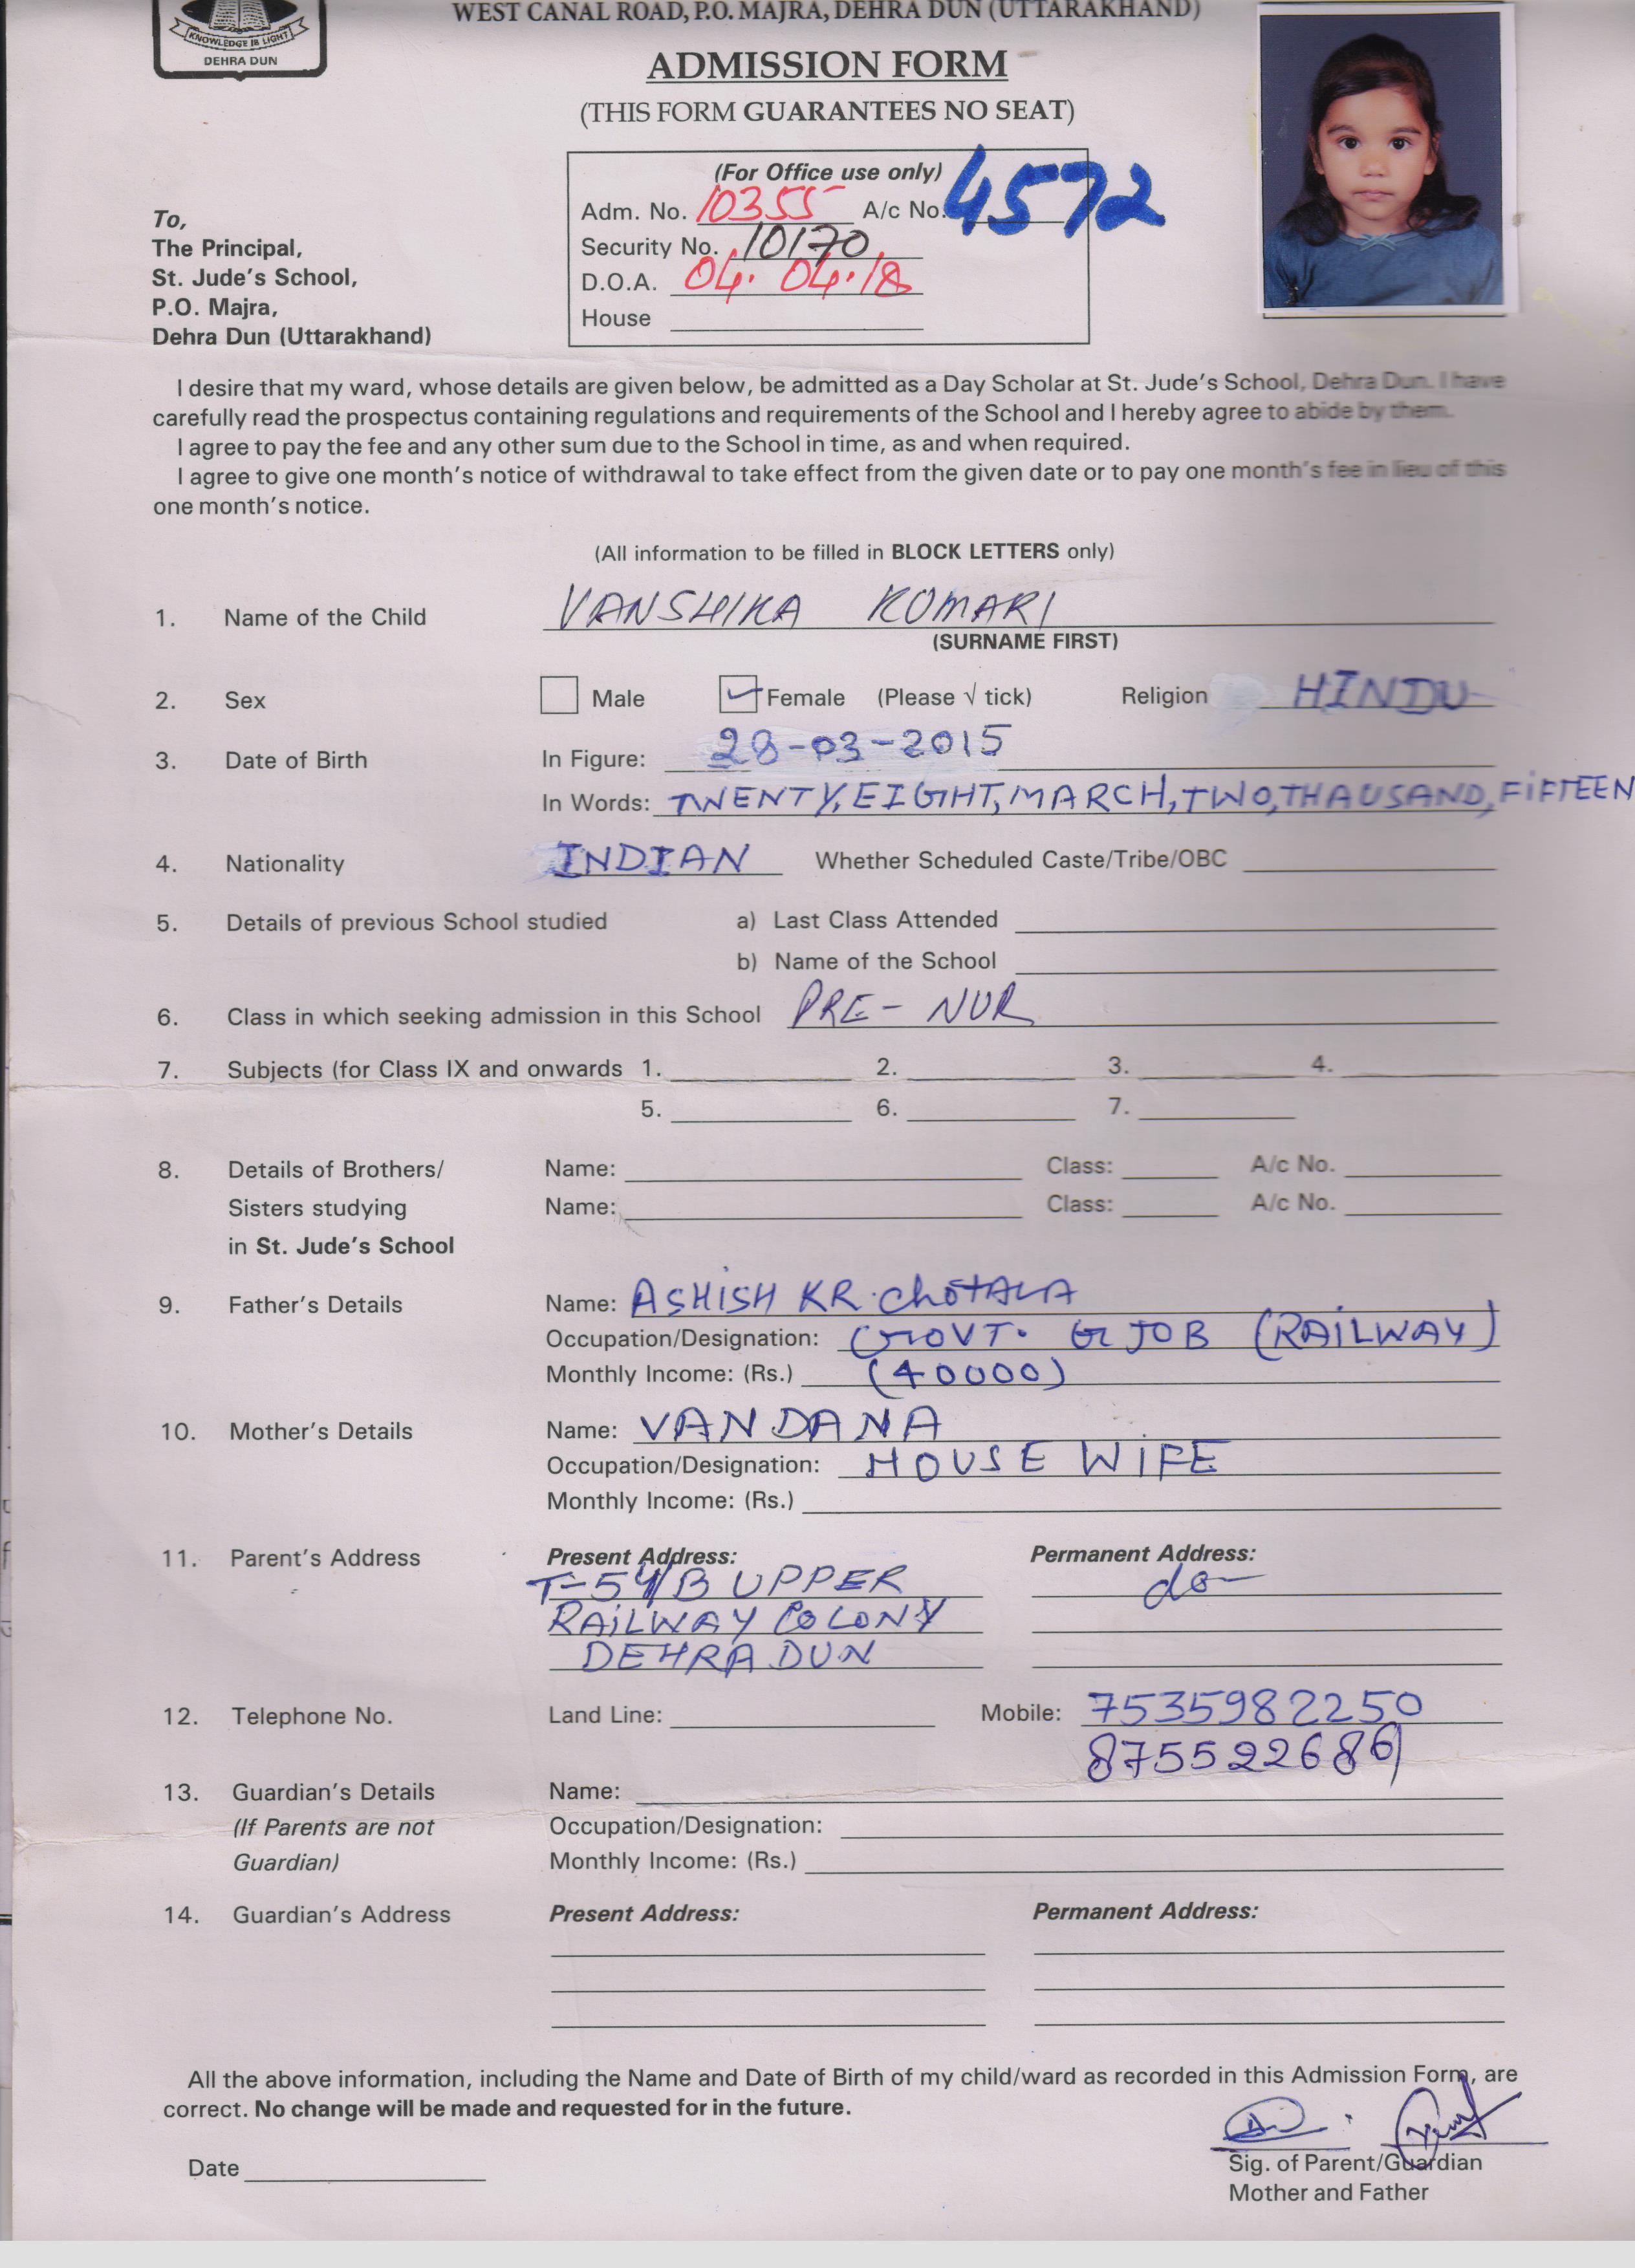 WEST CANAL ROAD, P.O. MAJRA, DEHRA DUN (UTTARAKHAND)
KNOWLEDGE IS LIGHT
DEHRA DUN
ADMISSION FORM
(THIS FORM GUARANTEES NO SEAT)
(For Office use only)
Adm. No. 10355 A/c No. 4572
Security No. 10170
D.O.A. 04.04.18
House
To,
The Principal,
St. Jude's School,
P.O. Majra,
Dehra Dun (Uttarakhand)
I desire that my ward, whose details are given below, be admitted as a Day Scholar at St. Jude's School, Dehra Dun. I have
carefully read the prospectus containing regulations and requirements of the School and I hereby agree to abide by them.
I agree to pay the fee and any other sum due to the School in time, as and when required.
I agree to give one month's notice of withdrawal to take effect from the given date or to pay one month's fee in lieu of this
one month's notice.
(All information to be filled in BLOCK LETTERS only)
1. Name of the Child VANSHIKA KUMARI
(SURNAME FIRST)
2. Sex Male Female (Please √ tick) Religion HINDU
3. Date of Birth In Figure: 28-03-2015
In Words: TWENTY, EIGHT, MARCH, TWO, THAUSAND, FIFTEEN
4. Nationality INDIAN Whether Scheduled Caste/Tribe/OBC
5. Details of previous School studied a) Last Class Attended
b) Name of the School
6. Class in which seeking admission in this School PRE- NUR
7. Subjects (for Class IX and onwards 1. 2. 3. 4.
5. 6. 7.
8. Details of Brothers/ Name: Class: A/c No.
Sisters studying Name: Class: A/c No.
in St. Jude's School
9. Father's Details Name: ASHISH KR. ChOTALA
Occupation/Designation: GOVT. G JOB (RAILWAY)
Monthly Income: (Rs.) (40000)
10. Mother's Details Name: VANDANA
Occupation/Designation: HOUSE WIFE
Monthly Income: (Rs.)
11. Parent's Address Present Address: Permanent Address:
T-54/B UPPER do-
RAILWAY COLONY
DEHRADUN
12. Telephone No. Land Line: Mobile: 7535982250
8755226861
13. Guardian's Details Name:
(If Parents are not Occupation/Designation:
Guardian) Monthly Income: (Rs.)
14. Guardian's Address Present Address: Permanent Address:
All the above information, including the Name and Date of Birth of my child/ward as recorded in this Admission Form, are
correct. No change will be made and requested for in the future.
Date Sig. of Parent/Guardian
Mother and Father